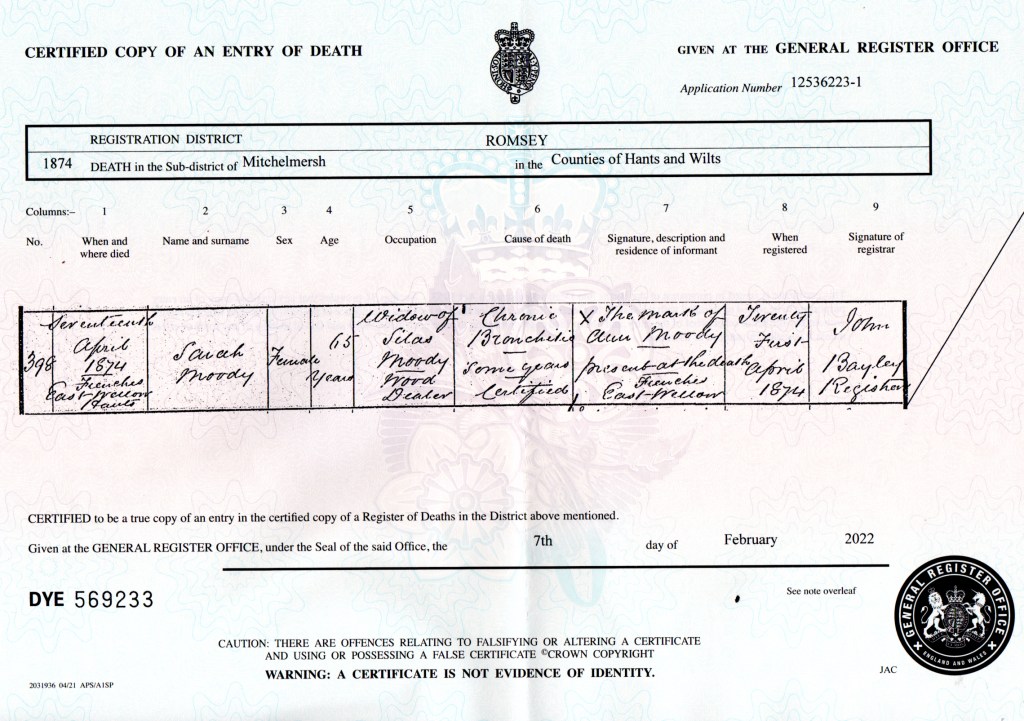 CERTIFIED COPY OF AN ENTRY OF DEATH
GIVEN AT THE GENERAL REGISTER OFFICE
Application Number 12536223-1
REGISTRATION DISTRICT ROMSEY
1874 DEATH in the Sub-district of Mitchelmersh in the Counties of Hants and Wilts
Columns:– 1 2 3 4 5 6 7 8 9
No. When and where died Name and surname Sex Age Occupation Cause of death Signature, description and residence of informant When registered Signature of registrar
398
Seventeenth
April
1874
Frenches
East Wellow
Hants
Sarah
Moody
Female
65
Years
Widow of
Silas
Moody
Wood
Dealer
Chronic
Bronchitis
Some years
Certified
X The mark of
Ann Moody
present at the death
Frenches
East Wellow
Twenty
First
April
1874
John
Bayley
Registrar
CERTIFIED to be a true copy of an entry in the certified copy of a Register of Deaths in the District above mentioned.
Given at the GENERAL REGISTER OFFICE, under the Seal of the said Office, the 7th day of February 2022
DYE 569233
See note overleaf
CAUTION: THERE ARE OFFENCES RELATING TO FALSIFYING OR ALTERING A CERTIFICATE
AND USING OR POSSESSING A FALSE CERTIFICATE ©CROWN COPYRIGHT
WARNING: A CERTIFICATE IS NOT EVIDENCE OF IDENTITY.
GENERAL REGISTER OFFICE
ENGLAND AND WALES
JAC
2031936 04/21 APS/A1SP